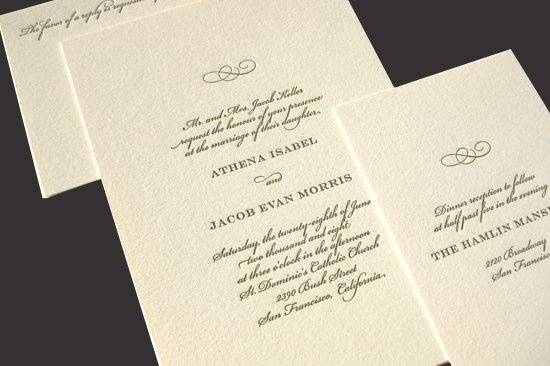 The favor of a reply is requested
Mr. and Mrs. Jacob Keller
request the honour of your presence
at the marriage of their daughter,
ATHENA ISABEL
and
JACOB EVAN MORRIS
Saturday, the twenty-eighth of June
two thousand and eight
at three o'clock in the afternoon
St. Dominic's Catholic Church
2390 Bush Street
San Francisco, California.
Dinner reception to follow
at half past five in the evening
THE HAMLIN MANS
2120 Broadway
San Francisco,